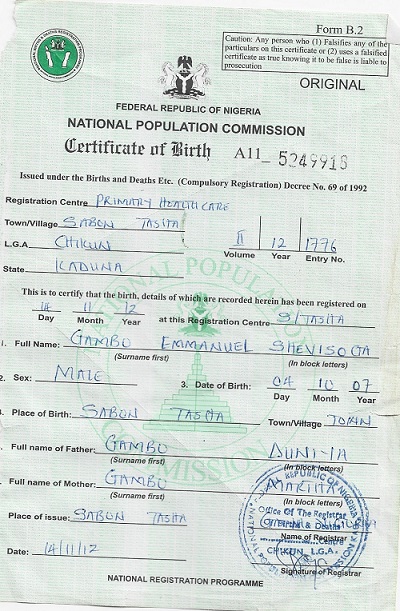 Form B.2
Caution: Any person who (1) Falsifies any of the
particulars on this certificate or (2) uses a falsified
certificate as true knowing it to be false is liable to
prosecution
ORIGINAL
FEDERAL REPUBLIC OF NIGERIA
NATIONAL POPULATION COMMISSION
Certificate of Birth A11 5249913
Issued under the Births and Deaths Etc. (Compulsory Registration) Decree No. 69 of 1992
Registration Centre PRIMARY HEALTH CARE
Town/Village SABON TASHA
L.G.A. CHIKUN
State KADUNA
II 12 1776
Volume Year Entry No.
This is to certify that the birth, details of which are recorded herein has been registered on
14 11 12 at this Registration Centre S/TASHA
Day Month Year
1. Full Name: GAMBO EMMANUEL
(Surname first) (In block letters)
2. Sex: MALE 3. Date of Birth: 04 10 07
Day Month Year
Place of Birth: SABON TASHA Town/Village TOWN
Full name of Father: GAMBO DUNIYA
(Surname first) (In block letters)
Full name of Mother: GAMBO MARTHA
(Surname first) (In block letters)
Place of issue: SABON TASHA
Name of Registrar
Date: 14/11/12
Signature of Registrar
REPUBLIC OF NIGERIA
Office Of The Registrar
Of Births & Deaths
Centre
CHIKUN L.G.A.
NATIONAL POPULATION COMMISSION
NATIONAL REGISTRATION PROGRAMME